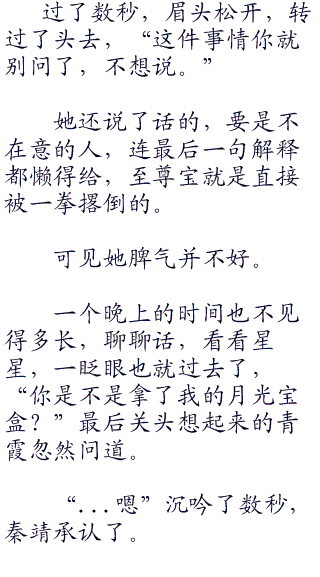 过了数秒，眉头松开，转
过了头去，“这件事情你就
别问了，不想说。”
她还说了话的，要是不
在意的人，连最后一句解释
都懒得给，至尊宝就是直接
被一拳撂倒的。
可见她脾气并不好。
一个晚上的时间也不见
得多长，聊聊话，看看星
星，一眨眼也就过去了，
“你是不是拿了我的月光宝
盒？”最后关头想起来的青
霞忽然问道。
“...嗯”沉吟了数秒，
秦靖承认了。